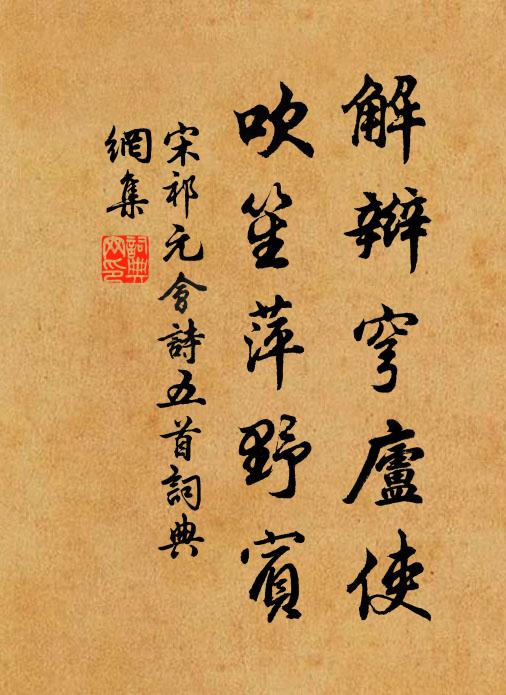 解辮穹廬使
吹笙萍野賓
宋祁元會詩五首詞典
網集
詞典
网印